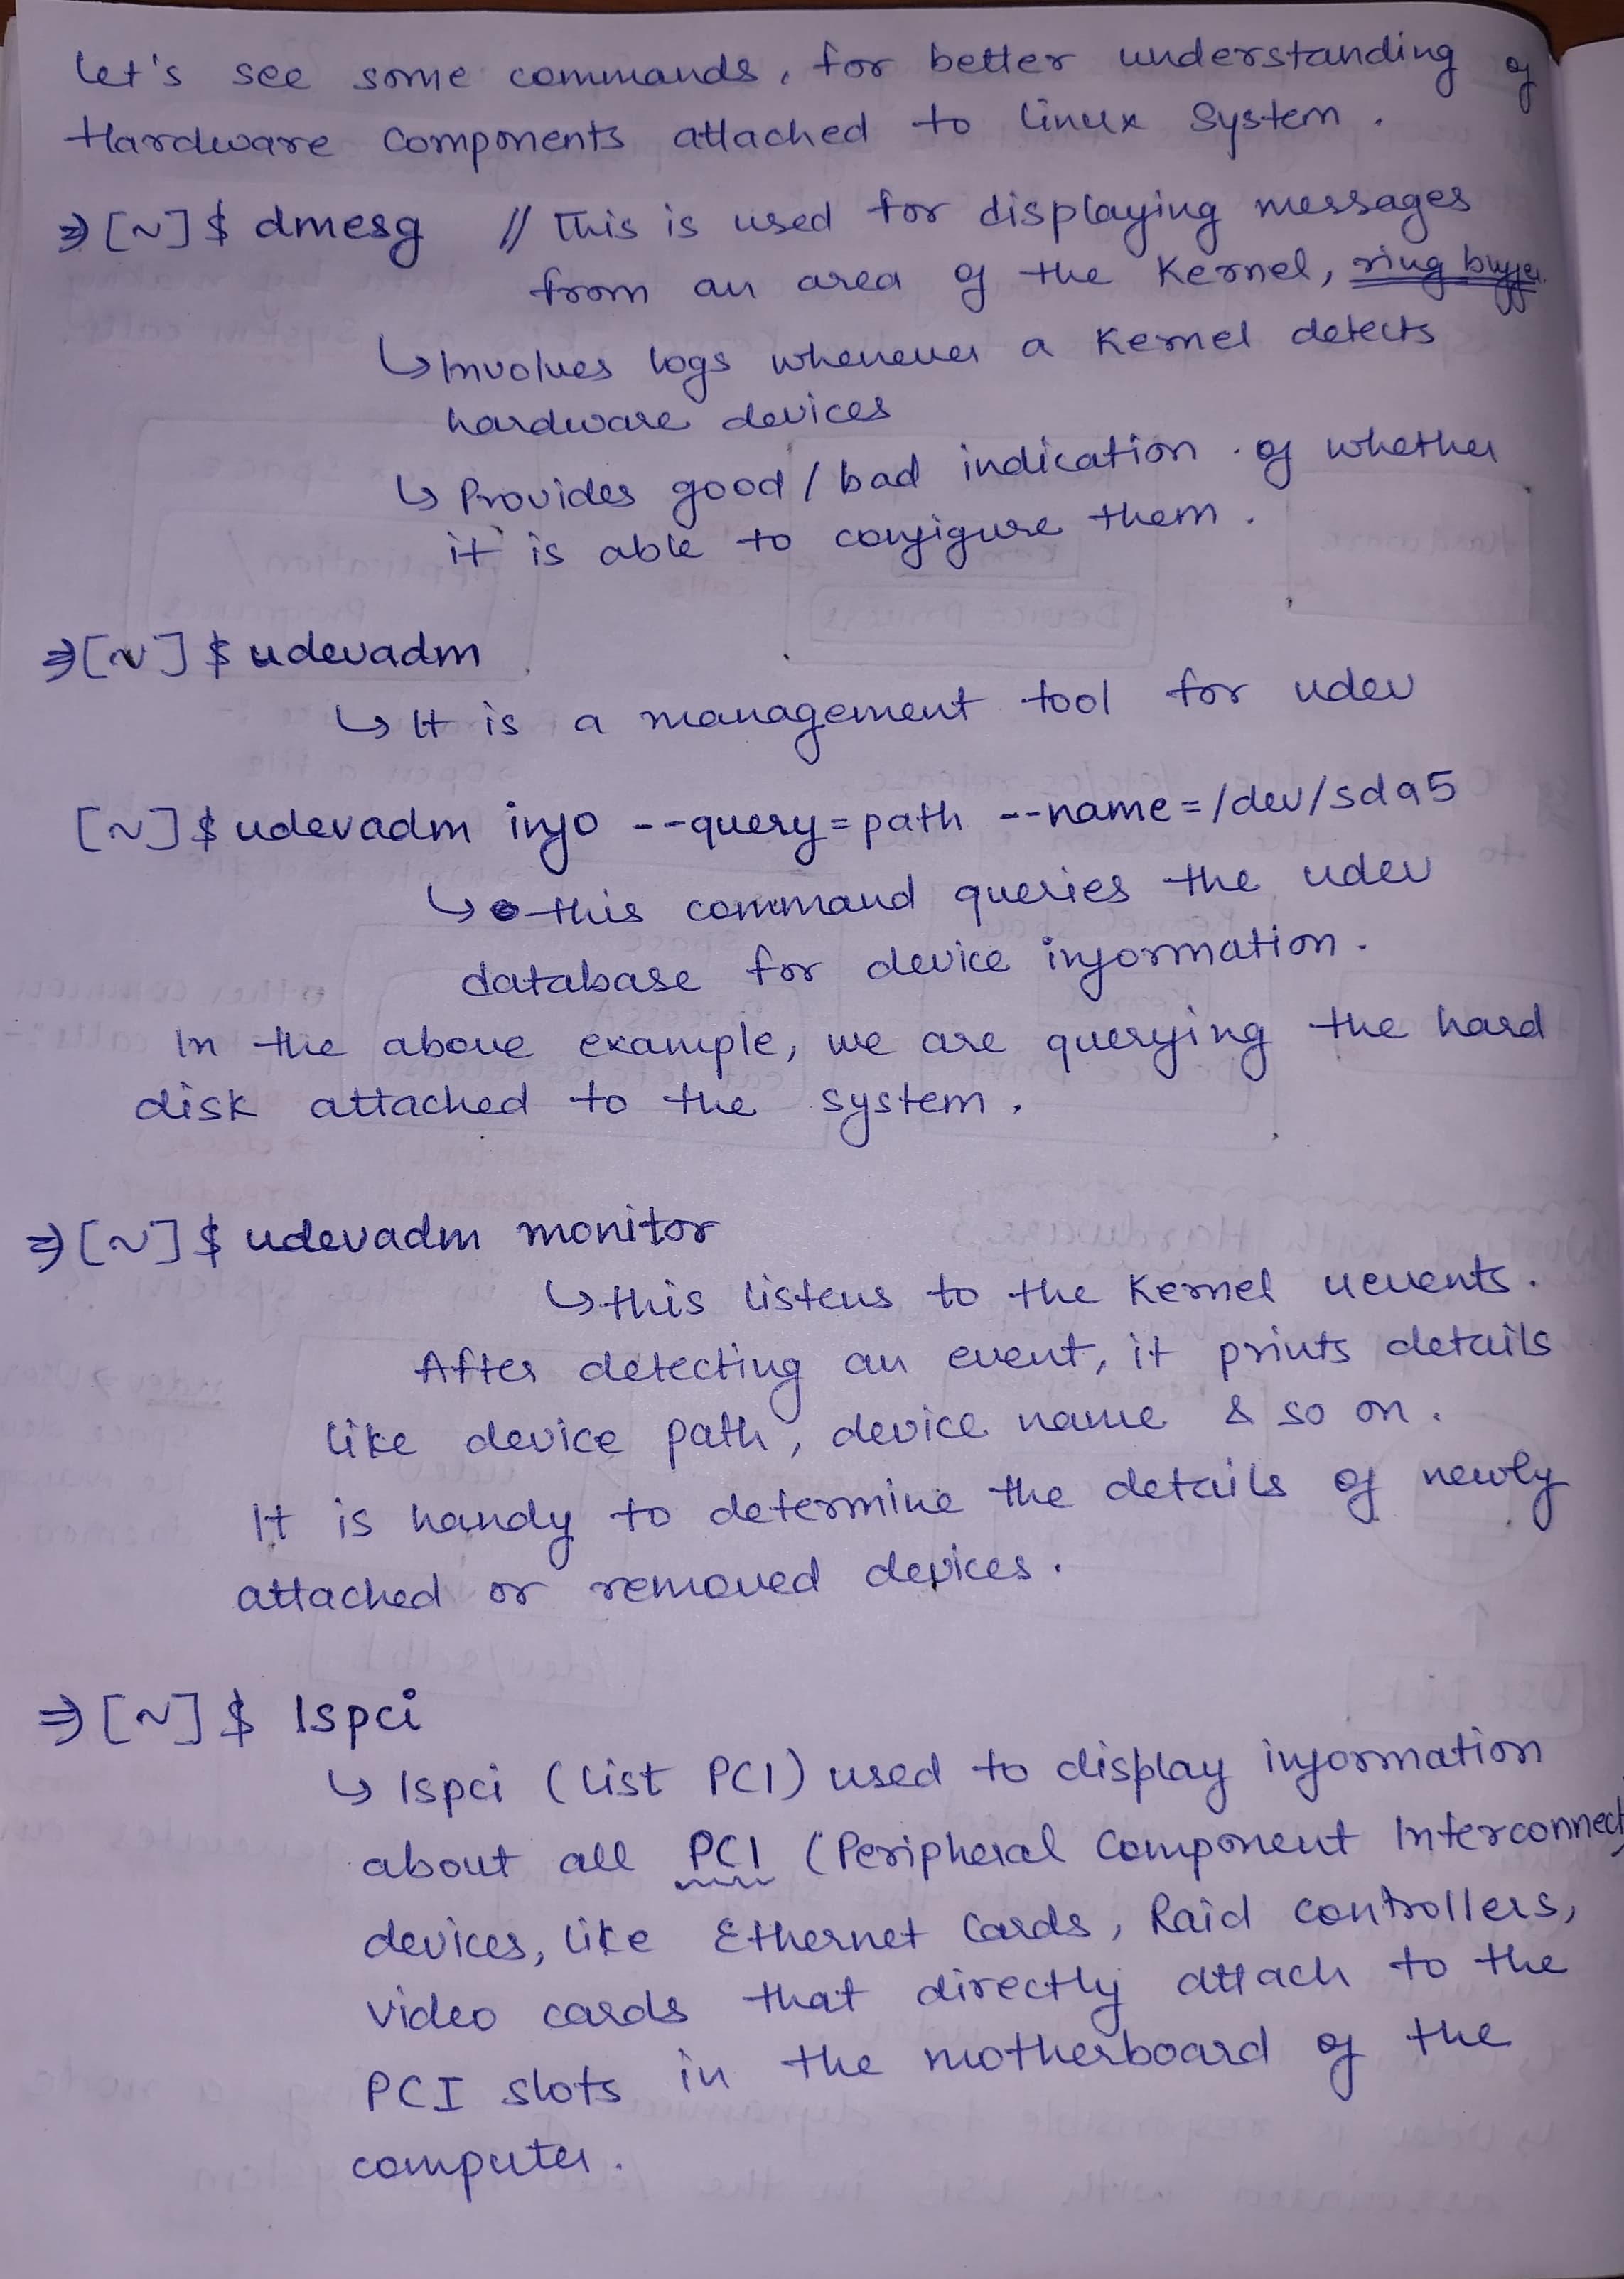 Let's see some commands, for better understanding of
Hardware Components attached to Linux System.
⇒[~]$ dmesg // This is used for displaying messages
from an area of the Kernel, ring buffer.
↳ Involves logs whenever a Kernel detects
hardware devices
↳ Provides good/bad indication of whether
it is able to configure them.
⇒[~]$ udevadm
↳ It is a management tool for udev
[~]$ udevadm info --query=path --name=/dev/sda5
↳ this command queries the udev
database for device information.
In the above example, we are querying the hard
disk attached to the system.
⇒[~]$ udevadm monitor
↳ this listens to the Kernel uevents.
After detecting an event, it prints details
like device path, device name & so on.
It is handy to determine the details of newly
attached or removed devices.
⇒[~]$ lspci
↳ lspci (List PCI) used to display information
about all PCI (Peripheral Component Interconnect)
devices, like Ethernet Cards, Raid controllers,
video cards that directly attach to the
PCI slots in the motherboard of the
computer.